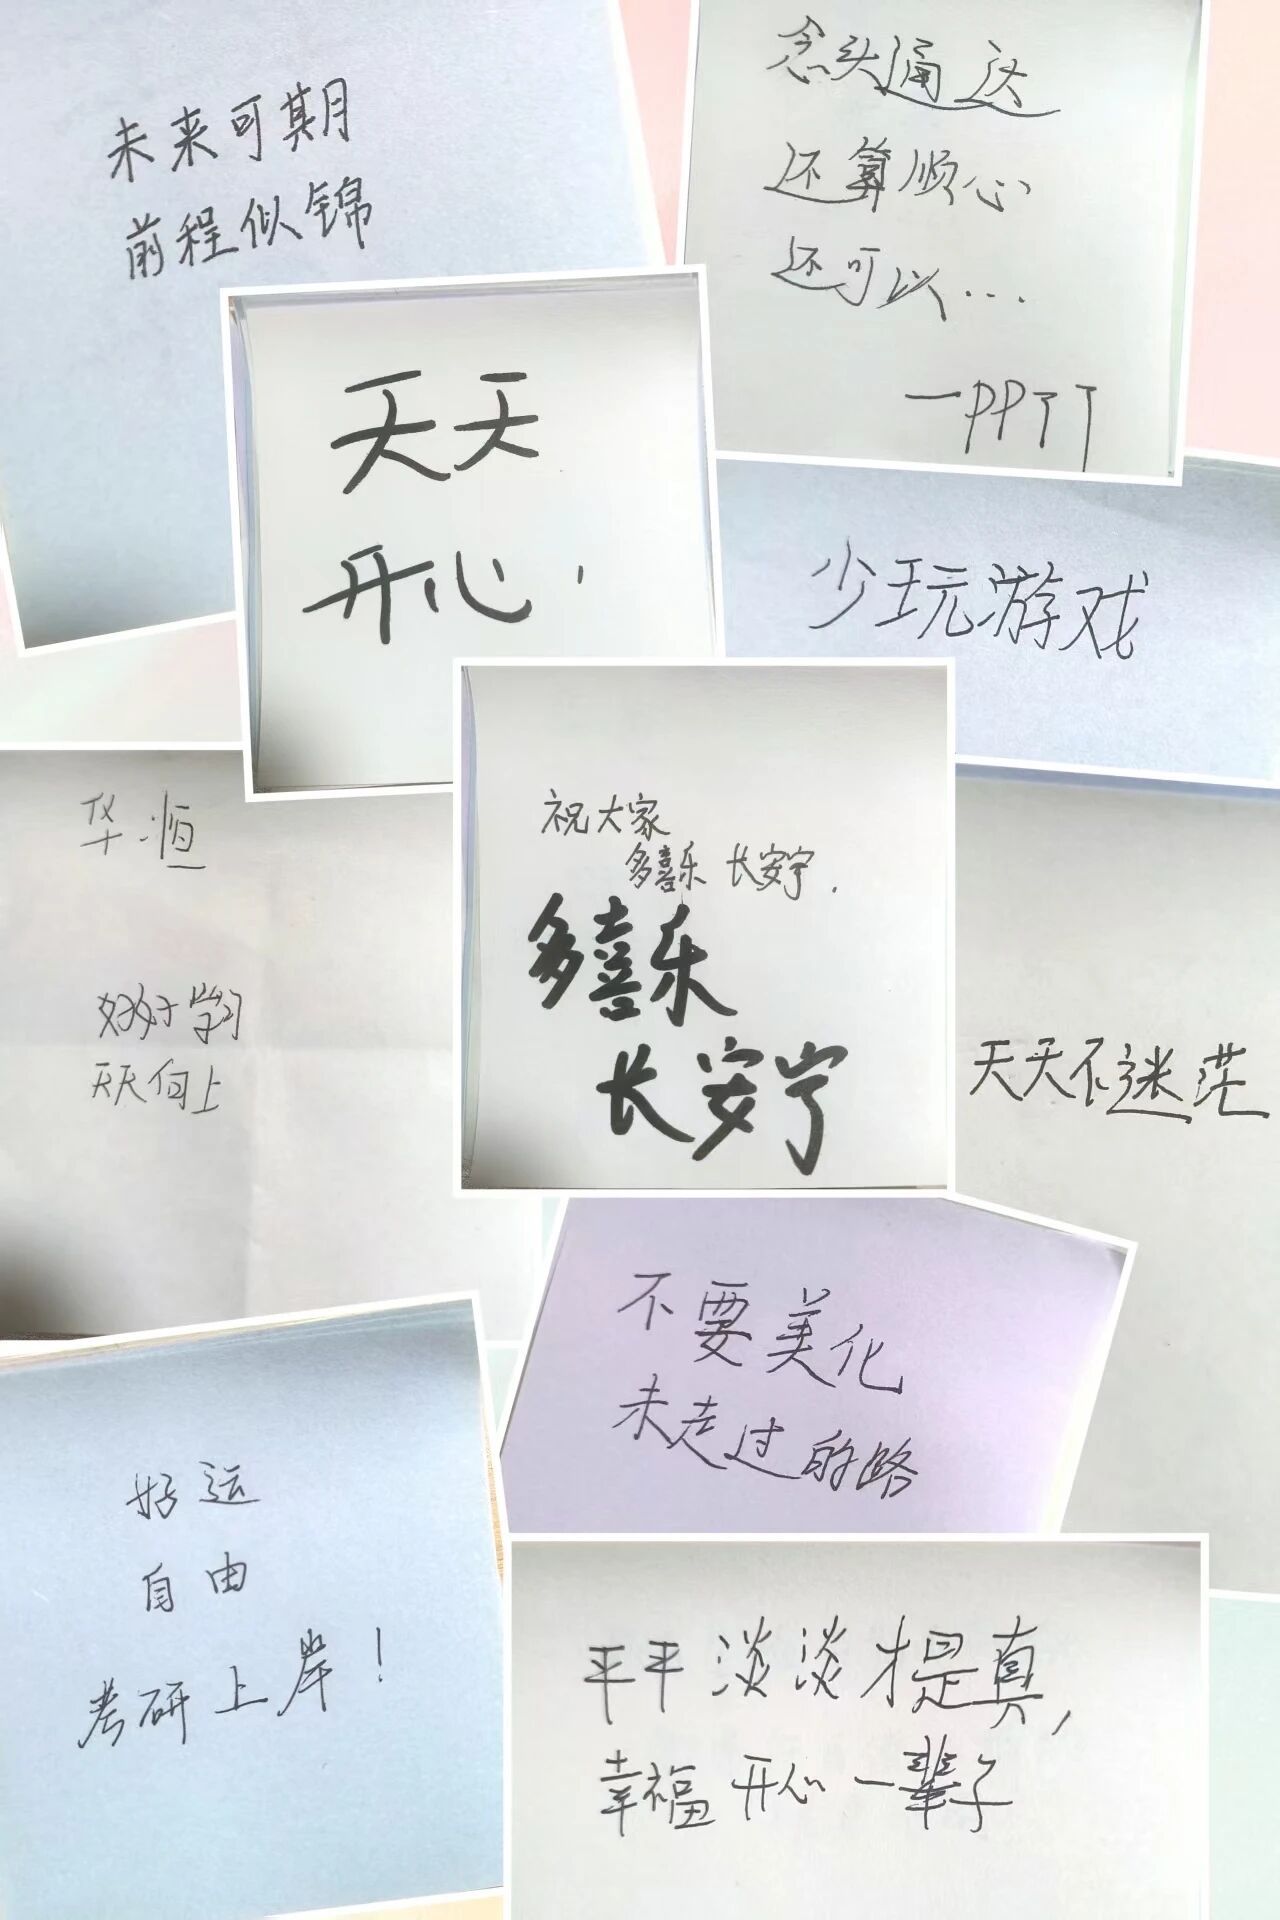 未来可期
前程似锦
念头通达
还算顺心
还可以...
一PPTT
天天
开心.
少玩游戏
华恒
好好学习
天天向上
祝大家
多喜乐 长安宁.
多喜乐
长安宁
天天不迷茫
不要美化
未走过的路
好运
自由
考研上岸!
平平淡淡才是真,
幸福开心一辈子